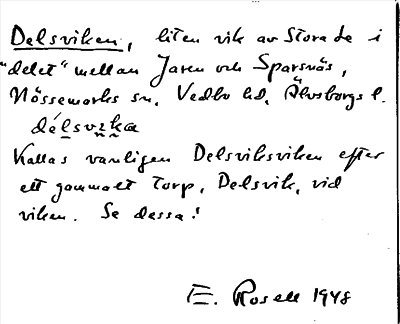 Delsviken, liten vik av Stora Le i
"delet" mellan Jaren och Sparsnäs,
Nössemarks sn, Vedbo hd, Älvsborgs l.
délsvɪka
Kallas vanligen Delsviksviken efter
ett gammalt torp, Delsvik, vid
viken. Se dessa!
E. Rosell 1948